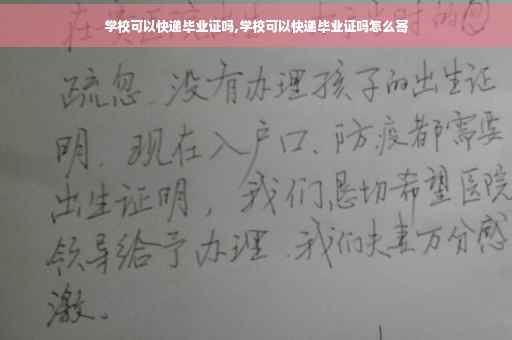 学校可以快递毕业证吗,学校可以快递毕业证吗怎么寄
疏忽、没有办理孩子的出生证
明、现在入户口、防疫都需要
出生证明，我们恳切希望医院
领导给予办理、我们夫妻万分感
激。